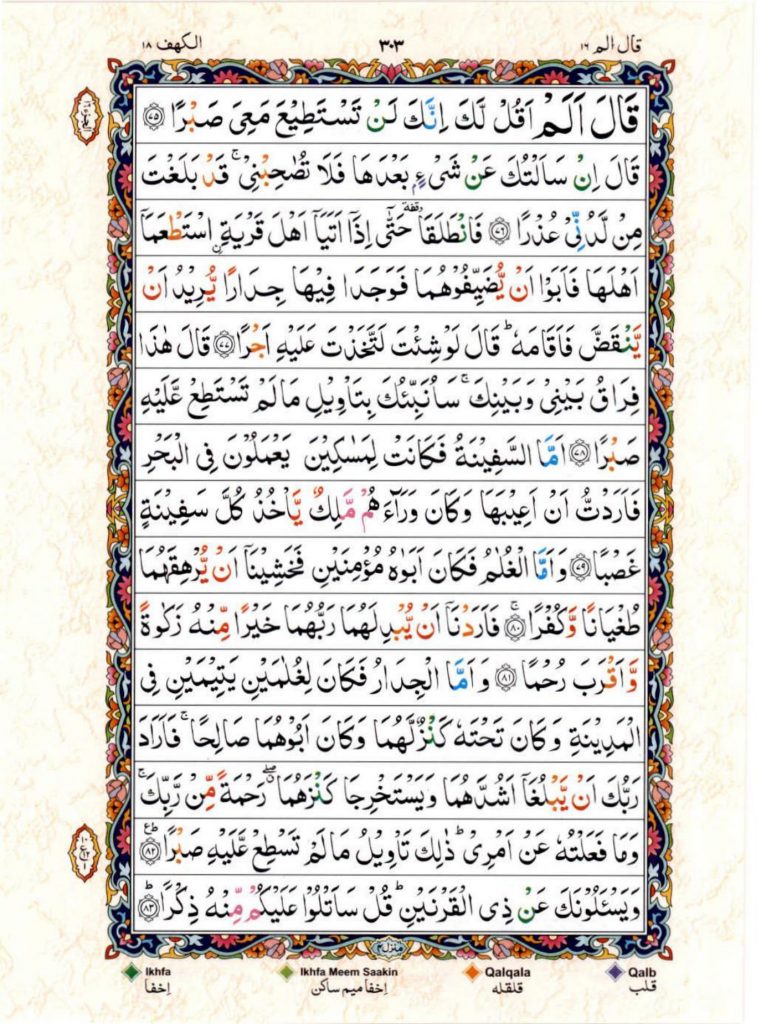 قال الم ١٦ ٣٠٣ الكهف ١٨
قَالَ اَلَمْ اَقُلْ لَّكَ اِنَّكَ لَنْ تَسْتَطِيْعَ مَعِىَ صَبْرًا ﴿٧٥﴾
قَالَ اِنْ سَاَلْتُكَ عَنْ شَىْءٍۭ بَعْدَهَا فَلَا تُصٰحِبْنِىْ ۚ قَدْ بَلَغْتَ
مِنْ لَّدُنِّىْ عُذْرًا ﴿٧٦﴾ فَانْطَلَقَا ٝ حَتّٰٓى اِذَاۤ اَتَيَاۤ اَهْلَ قَرْيَةِ ۨاسْتَطْعَمَاۤ
اَهْلَهَا فَاَبَوْا اَنْ يُّضَيِّفُوْهُمَا فَوَجَدَا فِيْهَا جِدَارًا يُّرِيْدُ اَنْ
يَّنْقَضَّ فَاَقَامَهٗ ؕ قَالَ لَوْ شِئْتَ لَتَّخَذْتَ عَلَيْهِ اَجْرًا ﴿٧٧﴾ قَالَ هٰذَا
فِرَاقُ بَيْنِىْ وَبَيْنِكَ ۚ سَاُنَبِّئُكَ بِتَاْوِيْلِ مَا لَمْ تَسْتَطِعْ عَّلَيْهِ
صَبْرًا ﴿٧٨﴾ اَمَّا السَّفِيْنَةُ فَكَانَتْ لِمَسٰكِيْنَ يَعْمَلُوْنَ فِى الْبَحْرِ
فَاَرَدْتُّ اَنْ اَعِيْبَهَا وَكَانَ وَرَآءَ هُمْ مَّلِكٌ يَّاْخُذُ كُلَّ سَفِيْنَةٍ
غَصْبًا ﴿٧٩﴾ وَاَمَّا الْغُلٰمُ فَكَانَ اَبَوٰهُ مُؤْمِنَيْنِ فَخَشِيْنَاۤ اَنْ يُّرْهِقَهُمَا
طُغْيَانًا وَّكُفْرًا ۚ ﴿٨٠﴾ فَاَرَدْنَاۤ اَنْ يُّبْدِلَهُمَا رَبُّهُمَا خَيْرًا مِّنْهُ زَكٰوةً
وَّاَقْرَبَ رُحْمًا ﴿٨١﴾ وَاَمَّا الْجِدَارُ فَكَانَ لِغُلٰمَيْنِ يَتِيْمَيْنِ فِى
الْمَدِيْنَةِ وَكَانَ تَحْتَهٗ كَنْزٌ لَّهُمَا وَكَانَ اَبُوْهُمَا صَالِحًا ۚ فَاَرَادَ
رَبُّكَ اَنْ يَّبْلُغَاۤ اَشُدَّهُمَا وَيَسْتَخْرِجَا كَنْزَهُمَا ۖ رَحْمَةً مِّنْ رَّبِّكَ ۚ
وَمَا فَعَلْتُهٗ عَنْ اَمْرِىْ ؕ ذٰلِكَ تَاْوِيْلُ مَا لَمْ تَسْطِعْ عَّلَيْهِ صَبْرًا ؕ ﴿٨٢﴾
وَيَسْـَٔلُوْنَكَ عَنْ ذِى الْقَرْنَيْنِ ؕ قُلْ سَاَتْلُوْا عَلَيْكُمْ مِّنْهُ ذِكْرًا ؕ ﴿٨٣﴾
منزل ٤
Ikhfa Ikhfa Meem Saakin Qalqala Qalb
اِخفا اِخفا میم ساکن قلقله قلب